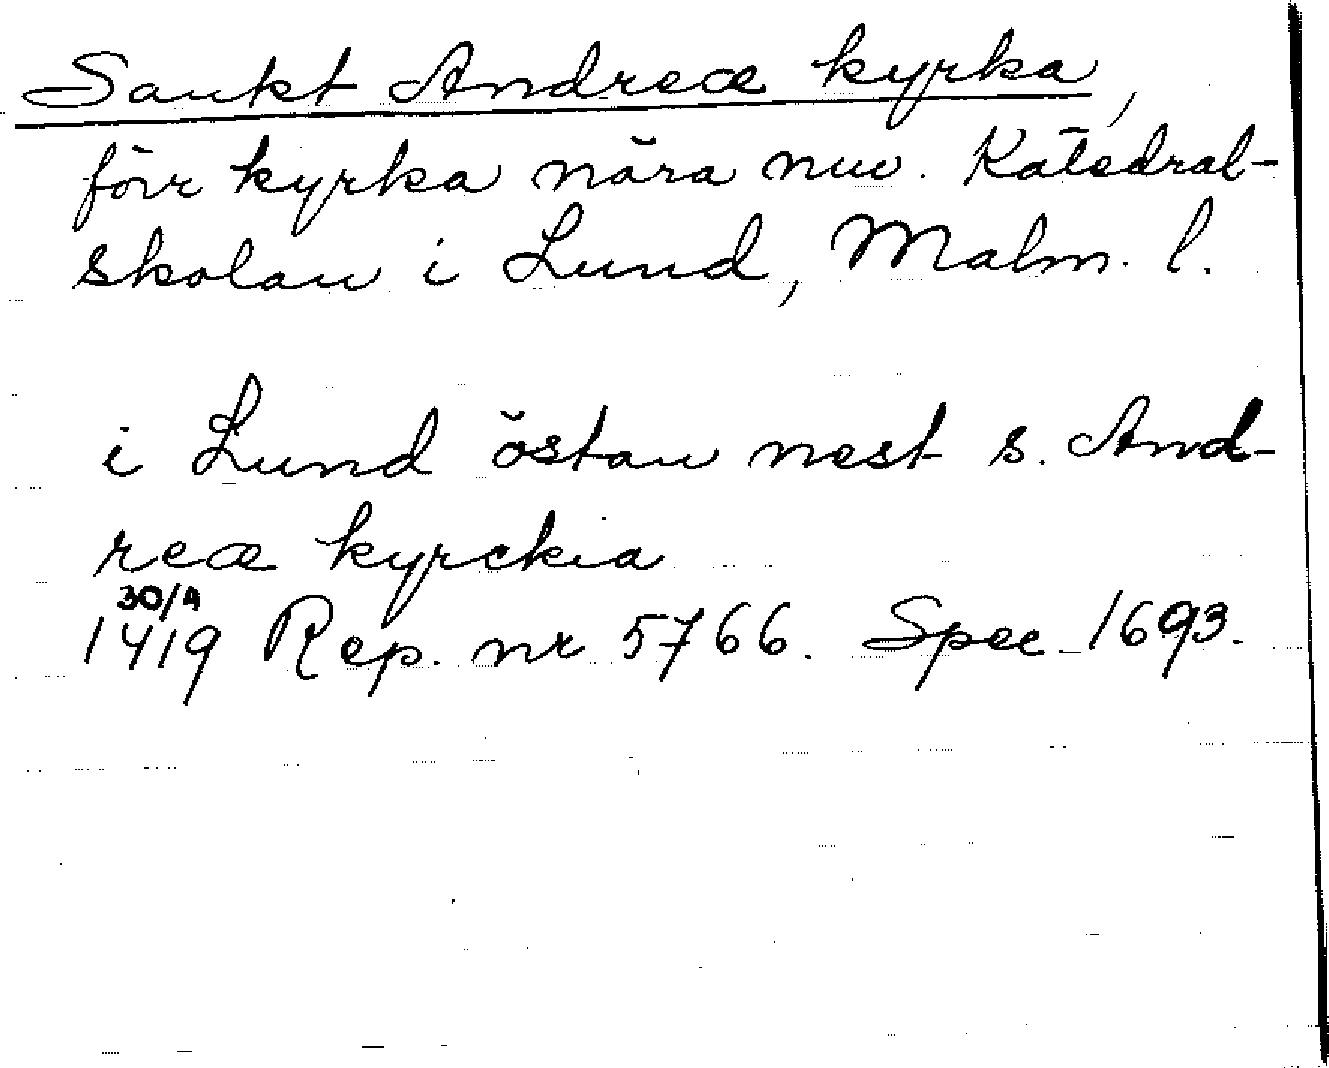 Sankt Andreæ kyrka,
förr kyrka nära nuv. Katedral-
skolan i Lund, Malm. l.
i Lund östan nest s. And-
reæ kyrckia
30/4
1419 Rep. nr 5766. Spec 1693.